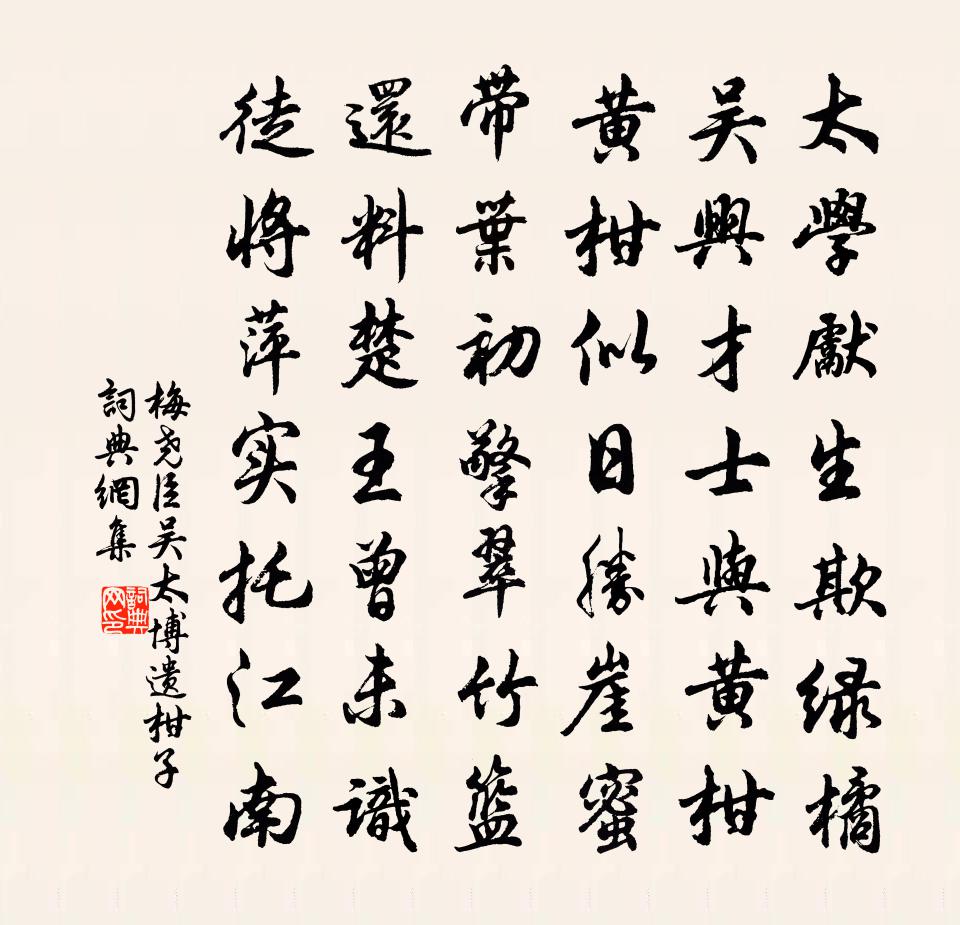 太學獻生欺绿橘
吴興才士與黄柑
黄柑似日勝崖蜜
带葉初擎翠竹籃
還料楚王曾未識
徒將萍实托江南
梅尧臣吴太博遗柑子
詞典網集
詞典网印